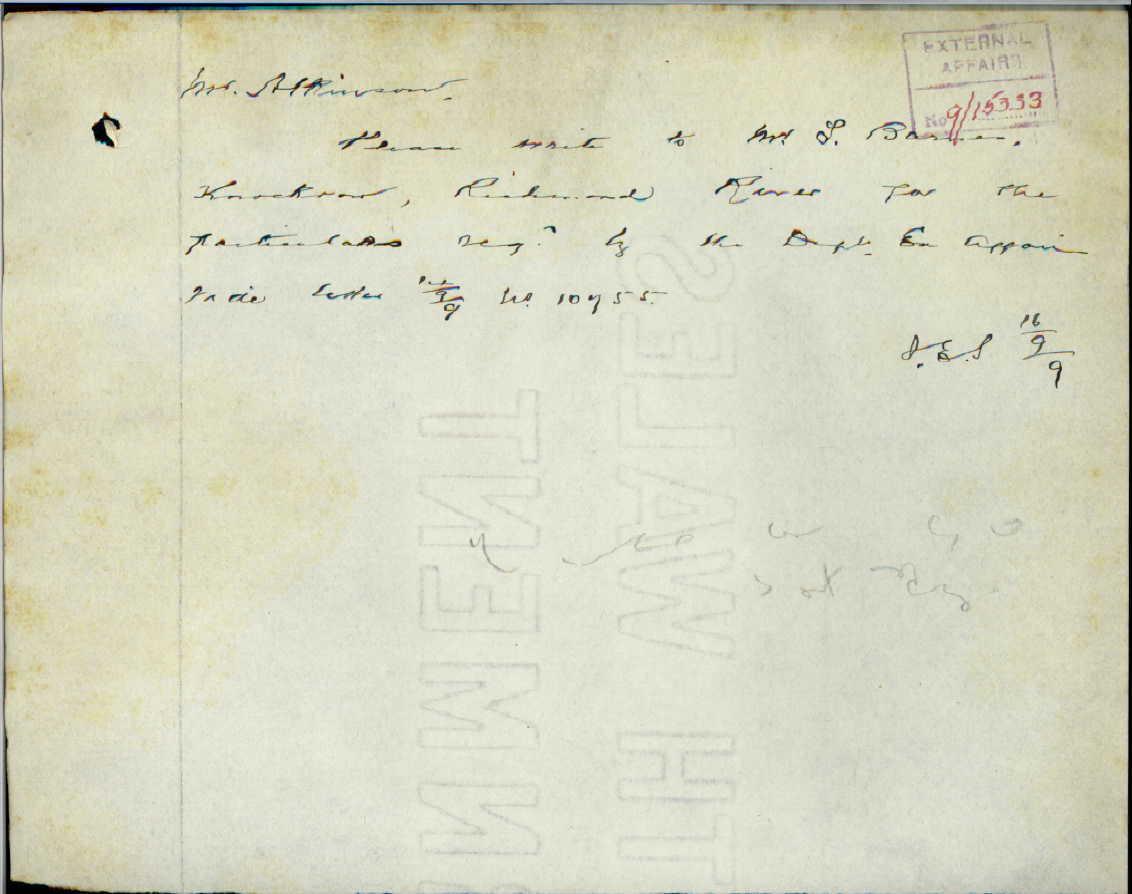 EXTERNAL
AFFAIRS
No 9/15333
Mr. Atkinson.
Please write to Mr. S. Barnes,
Knockrow, Richmond River for the
particulars req.d by the Dept. Ex Affairs
vide letter 14/9/9 No. 10955.
16/9/9